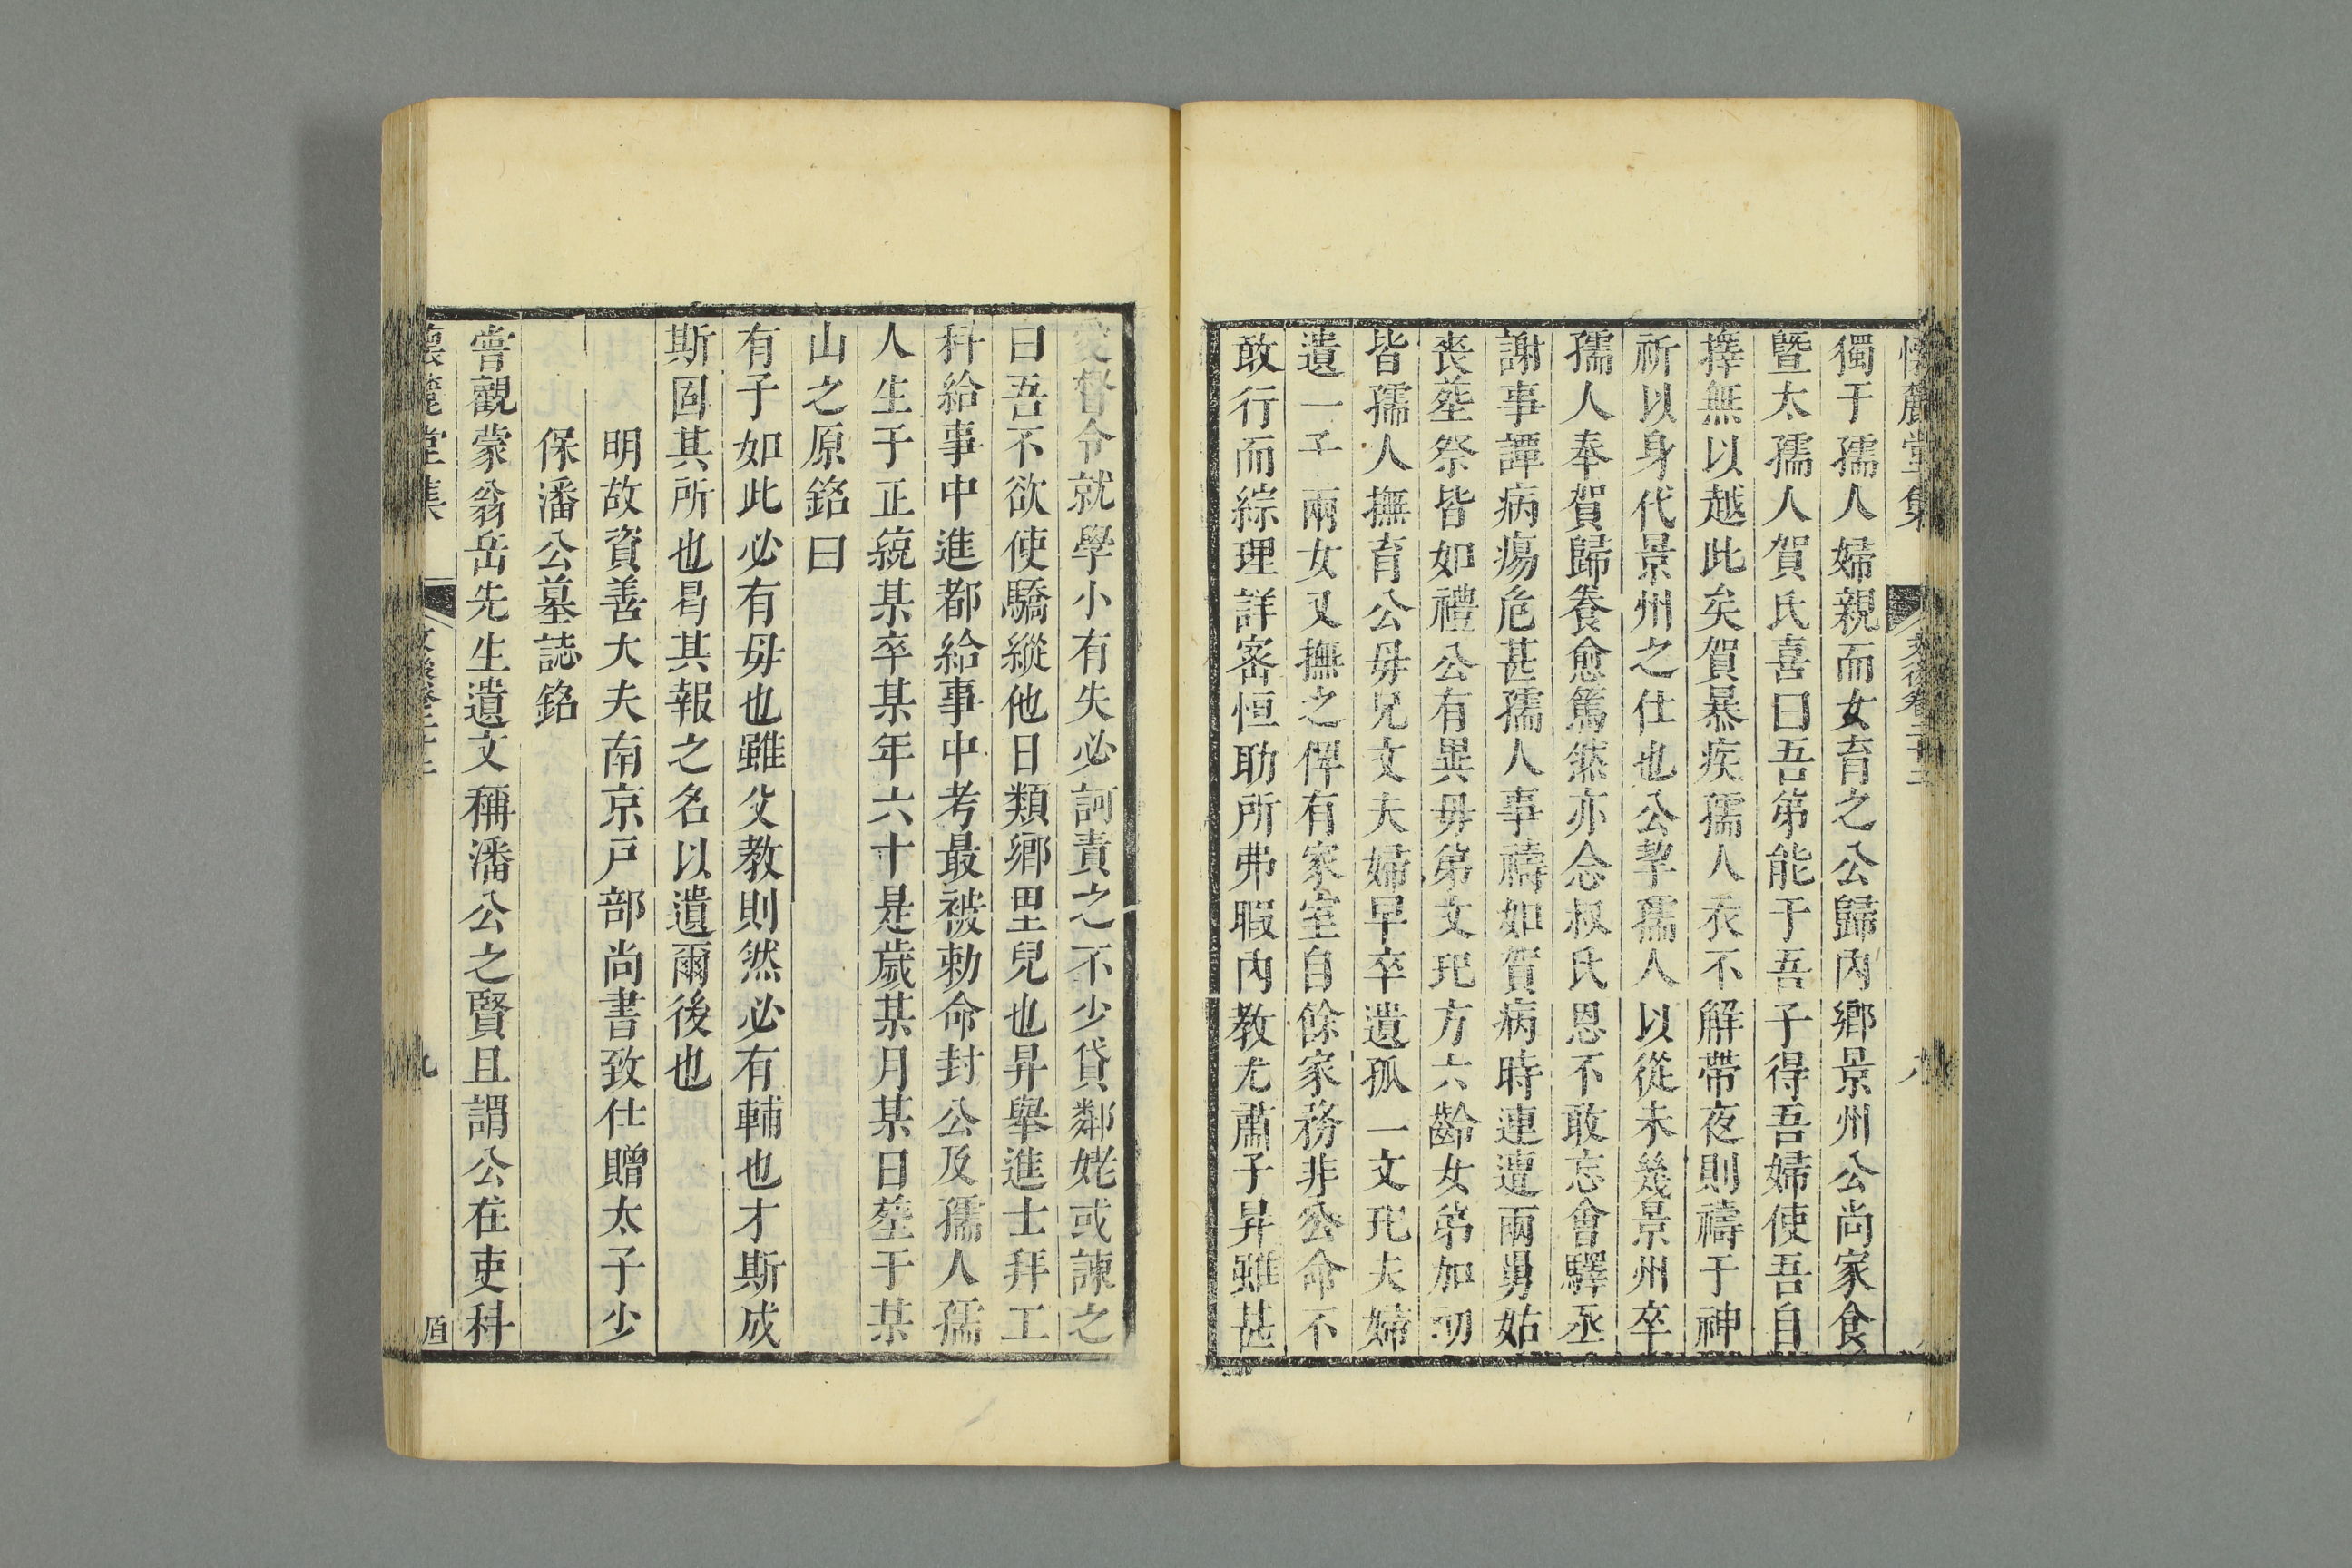 懷麓堂集 文後卷二十三 八
獨于孺人婦親而女育之公歸內鄉景州公尚家食
曁太孺人賀氏喜曰吾弟能于吾子得吾婦使吾自
擇無以越此矣賀暴疾孺人衣不解帶夜則禱于神
祈以身代景州之仕也公挈孺人以從未幾景州卒
孺人奉賀歸養愈篤然亦念叔氏恩不敢忘會驛丞
謝事譚病瘍危甚孺人事禱如賀病時連遭兩舅姑
喪塟祭皆如禮公有異毋弟文玘方六齡女弟加切
皆孺人撫育公毋兄文夫婦早卒遺孤一文玘夫婦
遺一子兩女又撫之俾有家室自餘家務非公命不
敢行而綜理詳審恒助所弗暇內教尤肅子昇雖甚
愛督令就學小有失必訶責之不少貸鄰姥或諫之
曰吾不欲使驕縱他日類鄉里兒也昇舉進士拜工
科給事中進都給事中考最被勅命封公及孺人孺
人生于正統某卒某年六十是歲某月某日塟于某
山之原銘曰
有子如此必有毋也雖父教則然必有輔也才斯成
斯固其所也曷其報之名以遺爾後也
明故資善大夫南京戸部尚書致仕贈太子少
保潘公墓誌銘
嘗觀蒙翁岳先生遺文稱潘公之賢且謂公在吏科
懷麓堂集 文後卷二十三 九